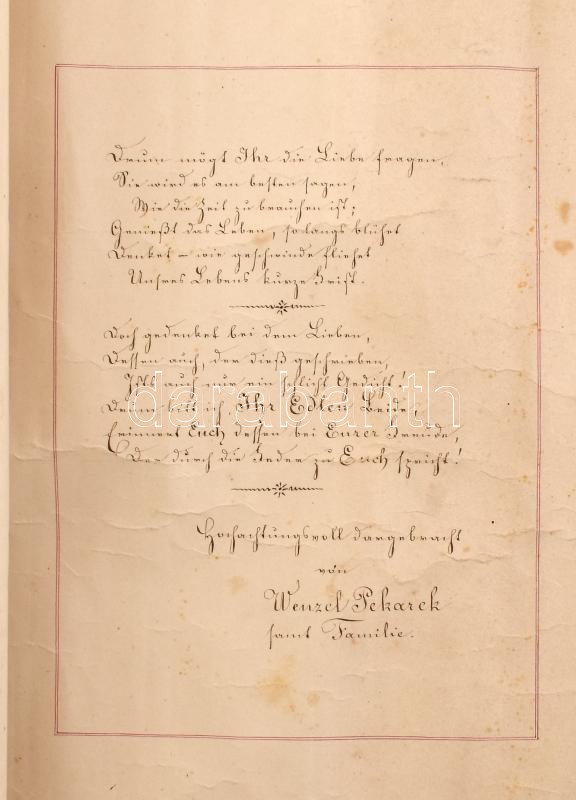 Drum mögt Ihr die Liebe fragen,
Sie wird es am besten sagen,
Wie die Zeit zu brauchen ist;
Genießt das Leben, so langs blühet
Denket – wie geschwinde fliehet
Unsres Lebens kurze Frist.
Doch gedenket bei dem Lieben,
Dessen auch, der dieß geschrieben,
Ists auch nur ein schlicht Gedicht!
Drum bitt ich, Ihr Edlen Beide,
Erinnert Euch dessen bei Eurer Freude,
Der durch die Feder zu Euch spricht!
Hochachtungsvoll dargebracht
von
Wenzel Pekarek
samt Familie.
darabanth